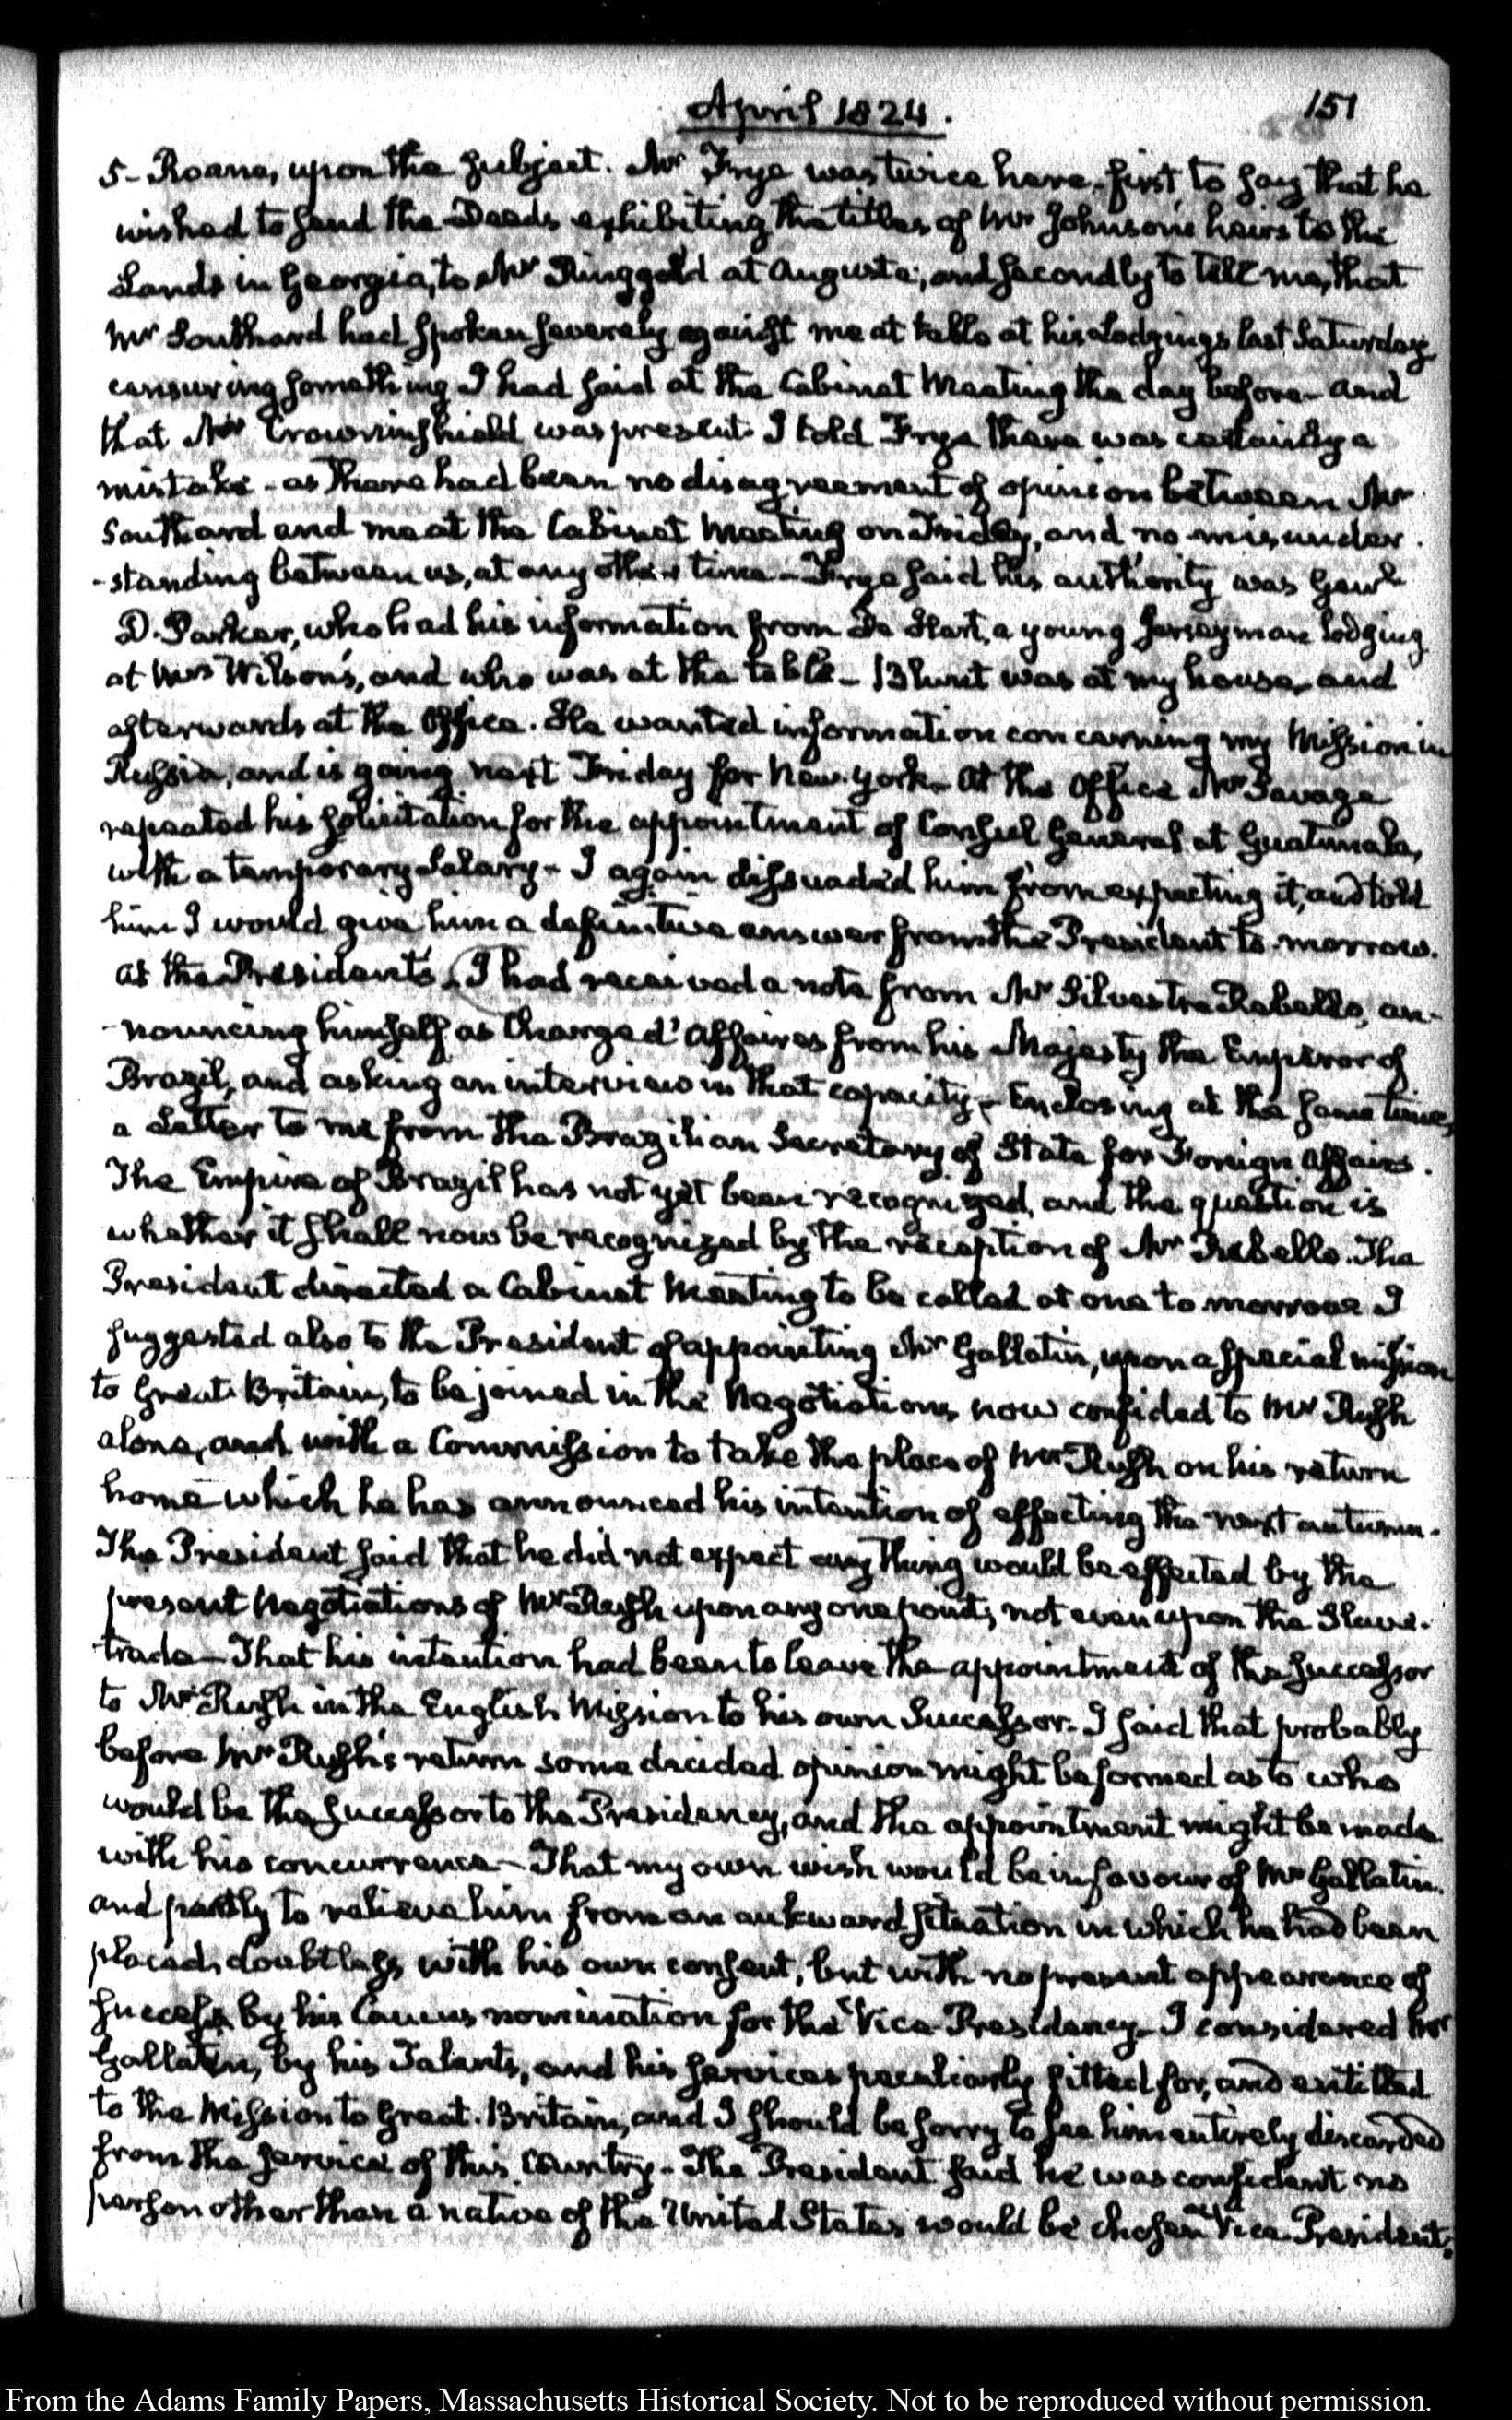 April 1824.
151
5- Roane, upon the subject. Mr Frye was twice here, first to say that he
wished to send the Deeds exhibiting the titles of Mr Johnson's heirs to the
Lands in Georgia, to Mr Ringgold at Augusta; and secondly to tell me, that
Mr Southard had spoken severely against me at table at his lodgings last Saturday
censuring something I had said at the Cabinet Meeting the day before- and
that Mr Crowninshield was present. I told Frye there was certainly a
mistake - as there had been no disagreement of opinion between Mr
Southard and me at the Cabinet Meeting on Friday, and no misunder
-standing between us, at any other time - Frye said his authority was Genl
D. Parker, who had his information from De Hart, a young Jerseyman lodging
at Mrs Wilson's, and who was at the table - Blunt was at my house, and
afterwards at the Office. He wanted information concerning my Mission in
Russia, and is going next Friday for New-York. At the Office Mr Savage
repeated his solicitation for the appointment of Consul General at Guatimala,
with a temporary Salary - I again dissuaded him from expecting it, and told
him I would give him a definitive answer from the President to-morrow.
At the President's. I had received a note from Mr Silvestre Rebello, an-
-nouncing himself as Chargé d'Affaires from his Majesty the Emperor of
Brazil, and asking an interview in that capacity - Enclosing at the same time,
a Letter to me from the Brazilian Secretary of State for Foreign Affairs.
The Empire of Brazil has not yet been recognized, and the question is
whether it shall now be recognized by the reception of Mr Rebello. The
President directed a Cabinet Meeting to be called at one to morrow. I
suggested also to the President of appointing Mr Gallatin, upon a special mission
to Great-Britain, to be joined in the Negotiations now confided to Mr Rush
alone, and with a Commission to take the place of Mr Rush on his return
home which he has announced his intention of effecting the next autumn.
The President said that he did not expect any thing would be effected by the
present Negotiations of Mr Rush upon any one point, not even upon the Slave-
trade - That his intention had been to leave the appointment of the successor
to Mr Rush in the English Mission to his own Successor. I said that probably
before Mr Rush's return some decided opinion might be formed as to who
would be the successor to the Presidency, and the appointment might be made
with his concurrence - That my own wish would be in favour of Mr Gallatin.
and partly to relieve him from an aukward situation in which he had been
placed, doubtless with his own consent, but with no present appearance of
success by his Caucus nomination for the Vice-Presidency - I considered Mr
Gallatin, by his Talents, and his services peculiarly fitted for, and entitled
to the Mission to Great-Britain, and I should be sorry to see him entirely discarded
from the service of this Country - The President said he was confident no
person other than a native of the United States would be chosen Vice-President;
From the Adams Family Papers, Massachusetts Historical Society. Not to be reproduced without permission.